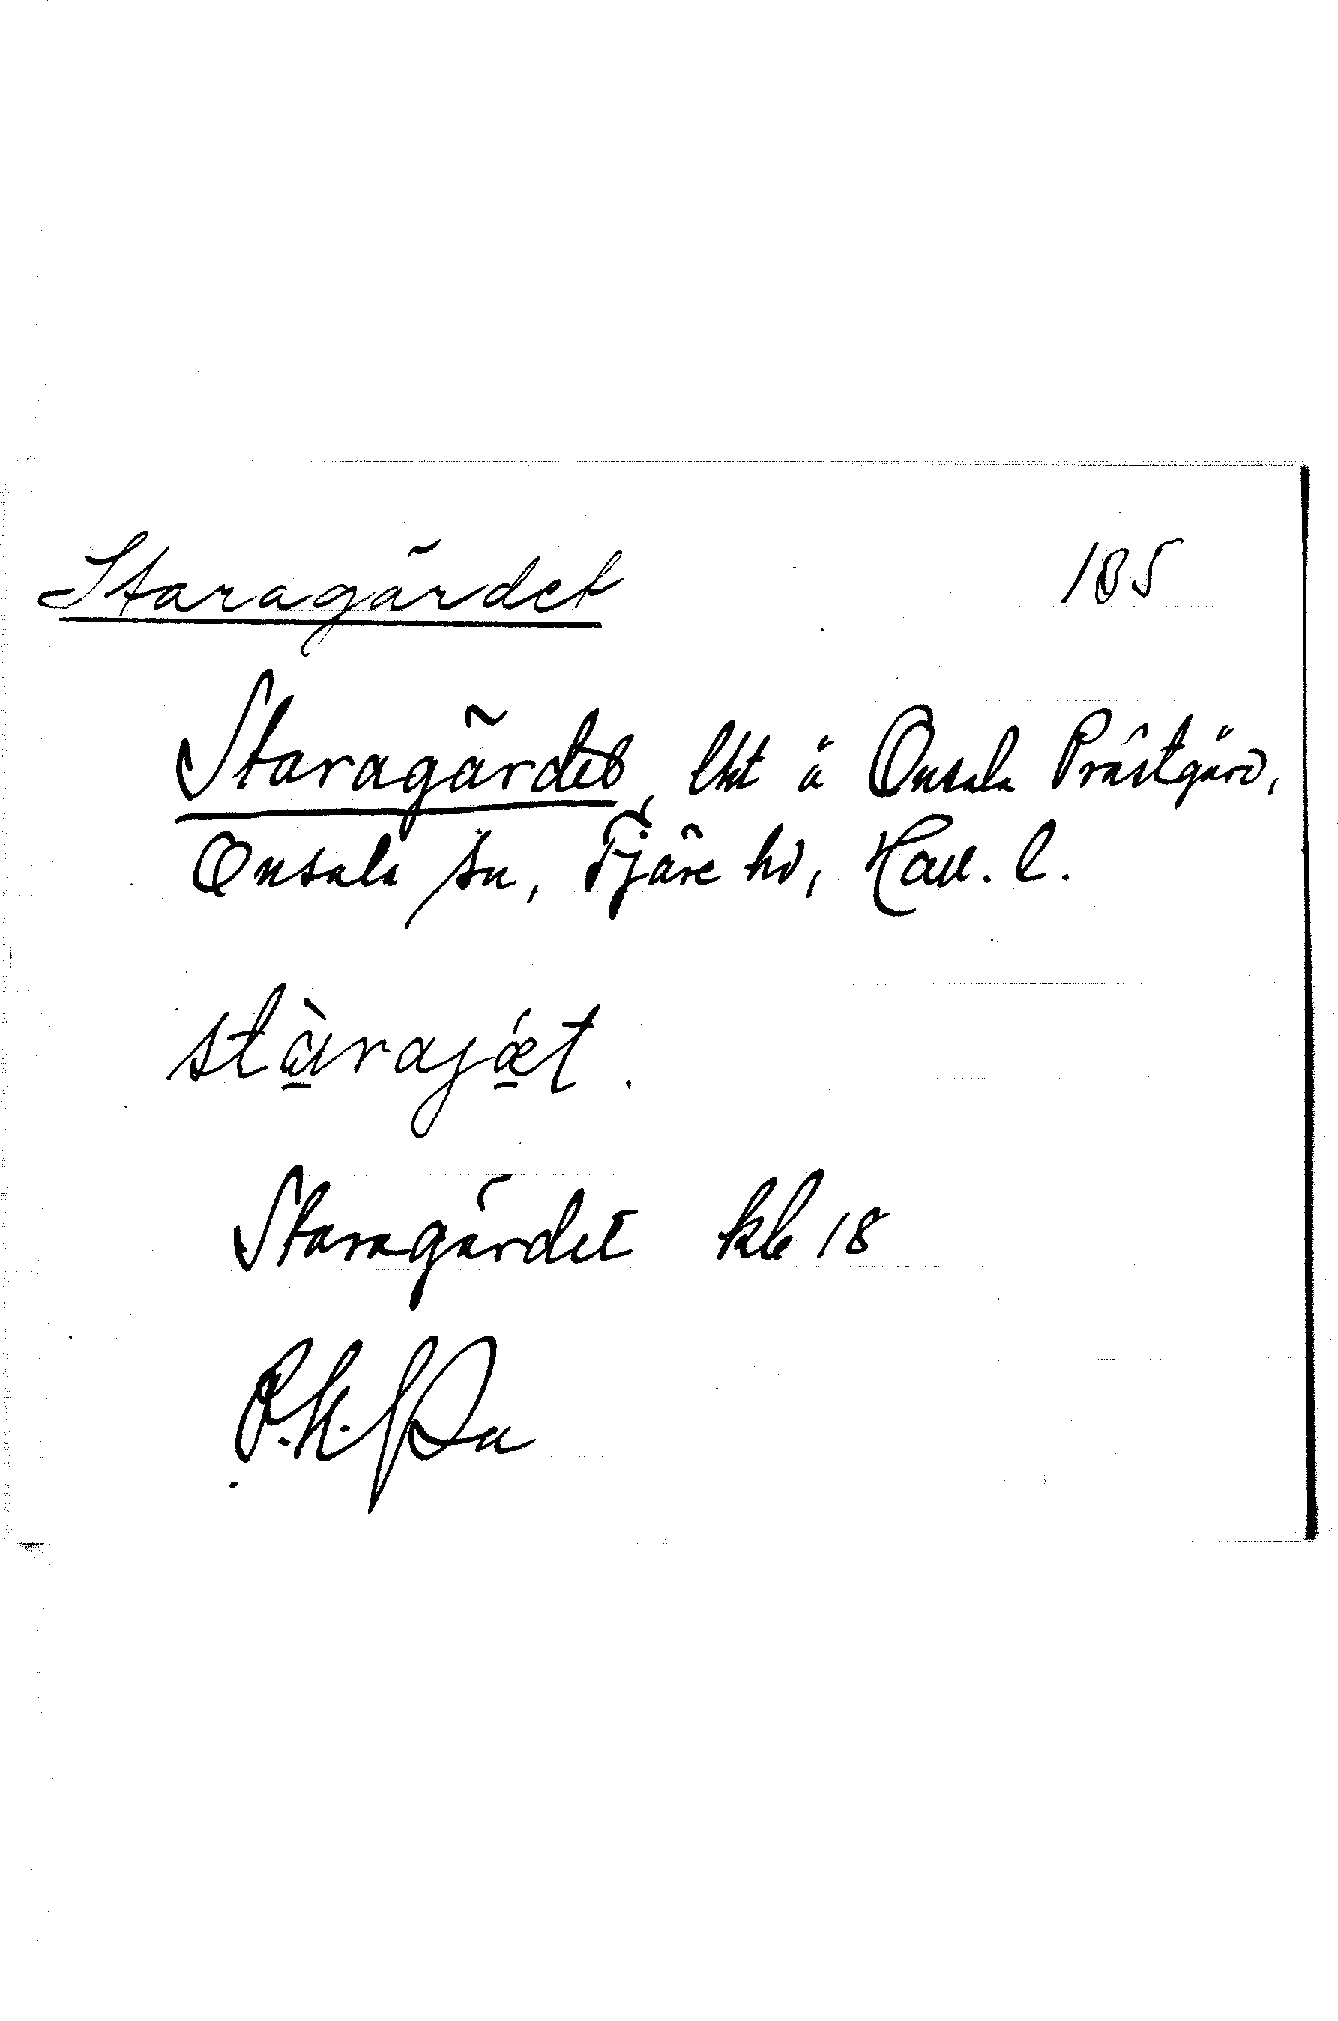 Staragärdet 185
Staragärdet, lht å Onsala Prästgård,
Onsala sn, Fjäre hd, Hall. l.
stàrajǽt.
Staragärdet kb 18